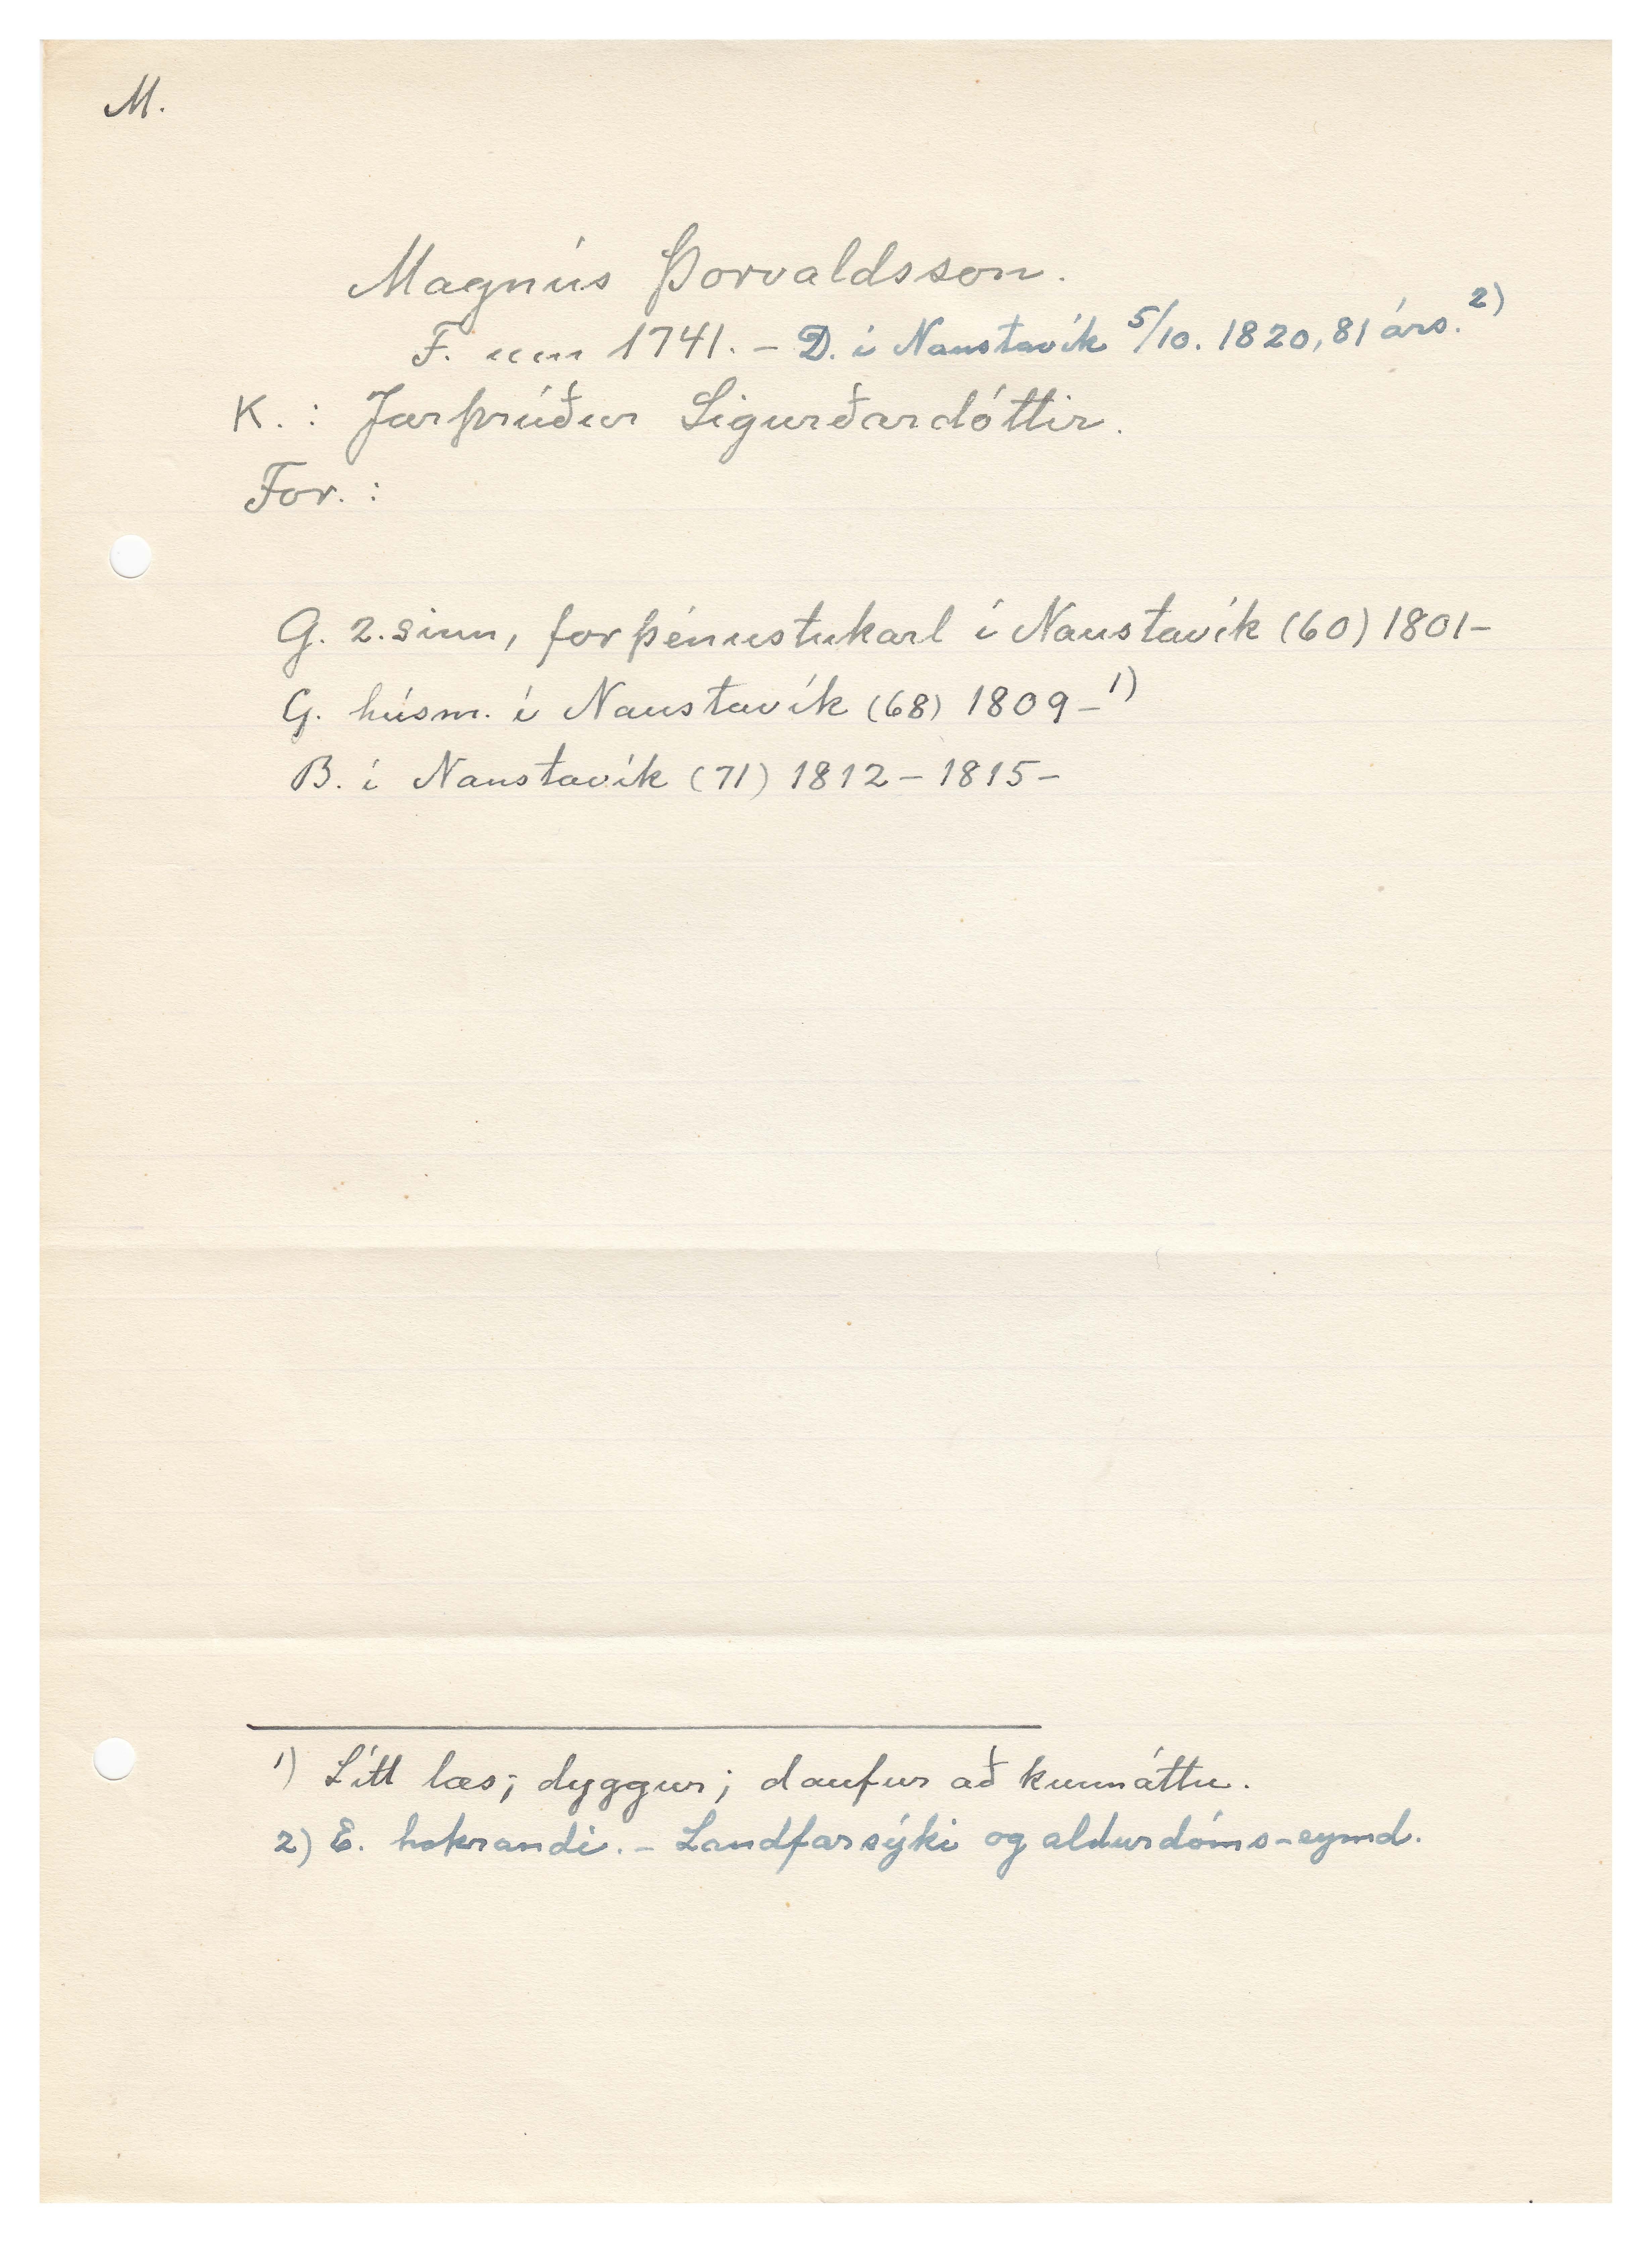 M.
Magnús Þorvaldsson.
F. um 1741. – D. í Naustavík 5/10. 1820, 81 árs. 2)
K. : Jarþrúður Sigurðardóttir.
For. :
G. 2. sinn, forþénustukarl í Naustavík (60) 1801–
G. húsm. í Naustavík (68) 1809– 1)
B. í Naustavík (71) 1812 – 1815 –
1) Lítt læs; dyggur; daufur að kunnáttu.
2) E. hokrandi. – Landfarsýki og aldurdóms-eymd.